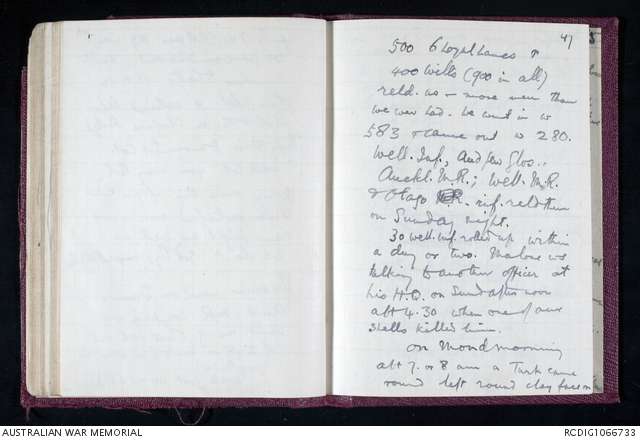 47
500 6 Loyal Lancs &
400 Wilts (900 in all)
reld. us - more men than
we ever had. We went in w
583 & came out w 280.
Well. Inf., and few Glos..
Auckl. M.R.; Well. M.R.
& Otago M.R. inf. reld them
on Sunday night.
30 well. inf. rolled up within
a day or two. Malone ws
talking to another officer at
his H.Q. on Sund afternoon
abt 4.30 when one of our
shells killed him.
On Mond morning
abt 7. or 8 am a Turk came
round left round clay face
AUSTRALIAN WAR MEMORIAL
RCDIG1066733